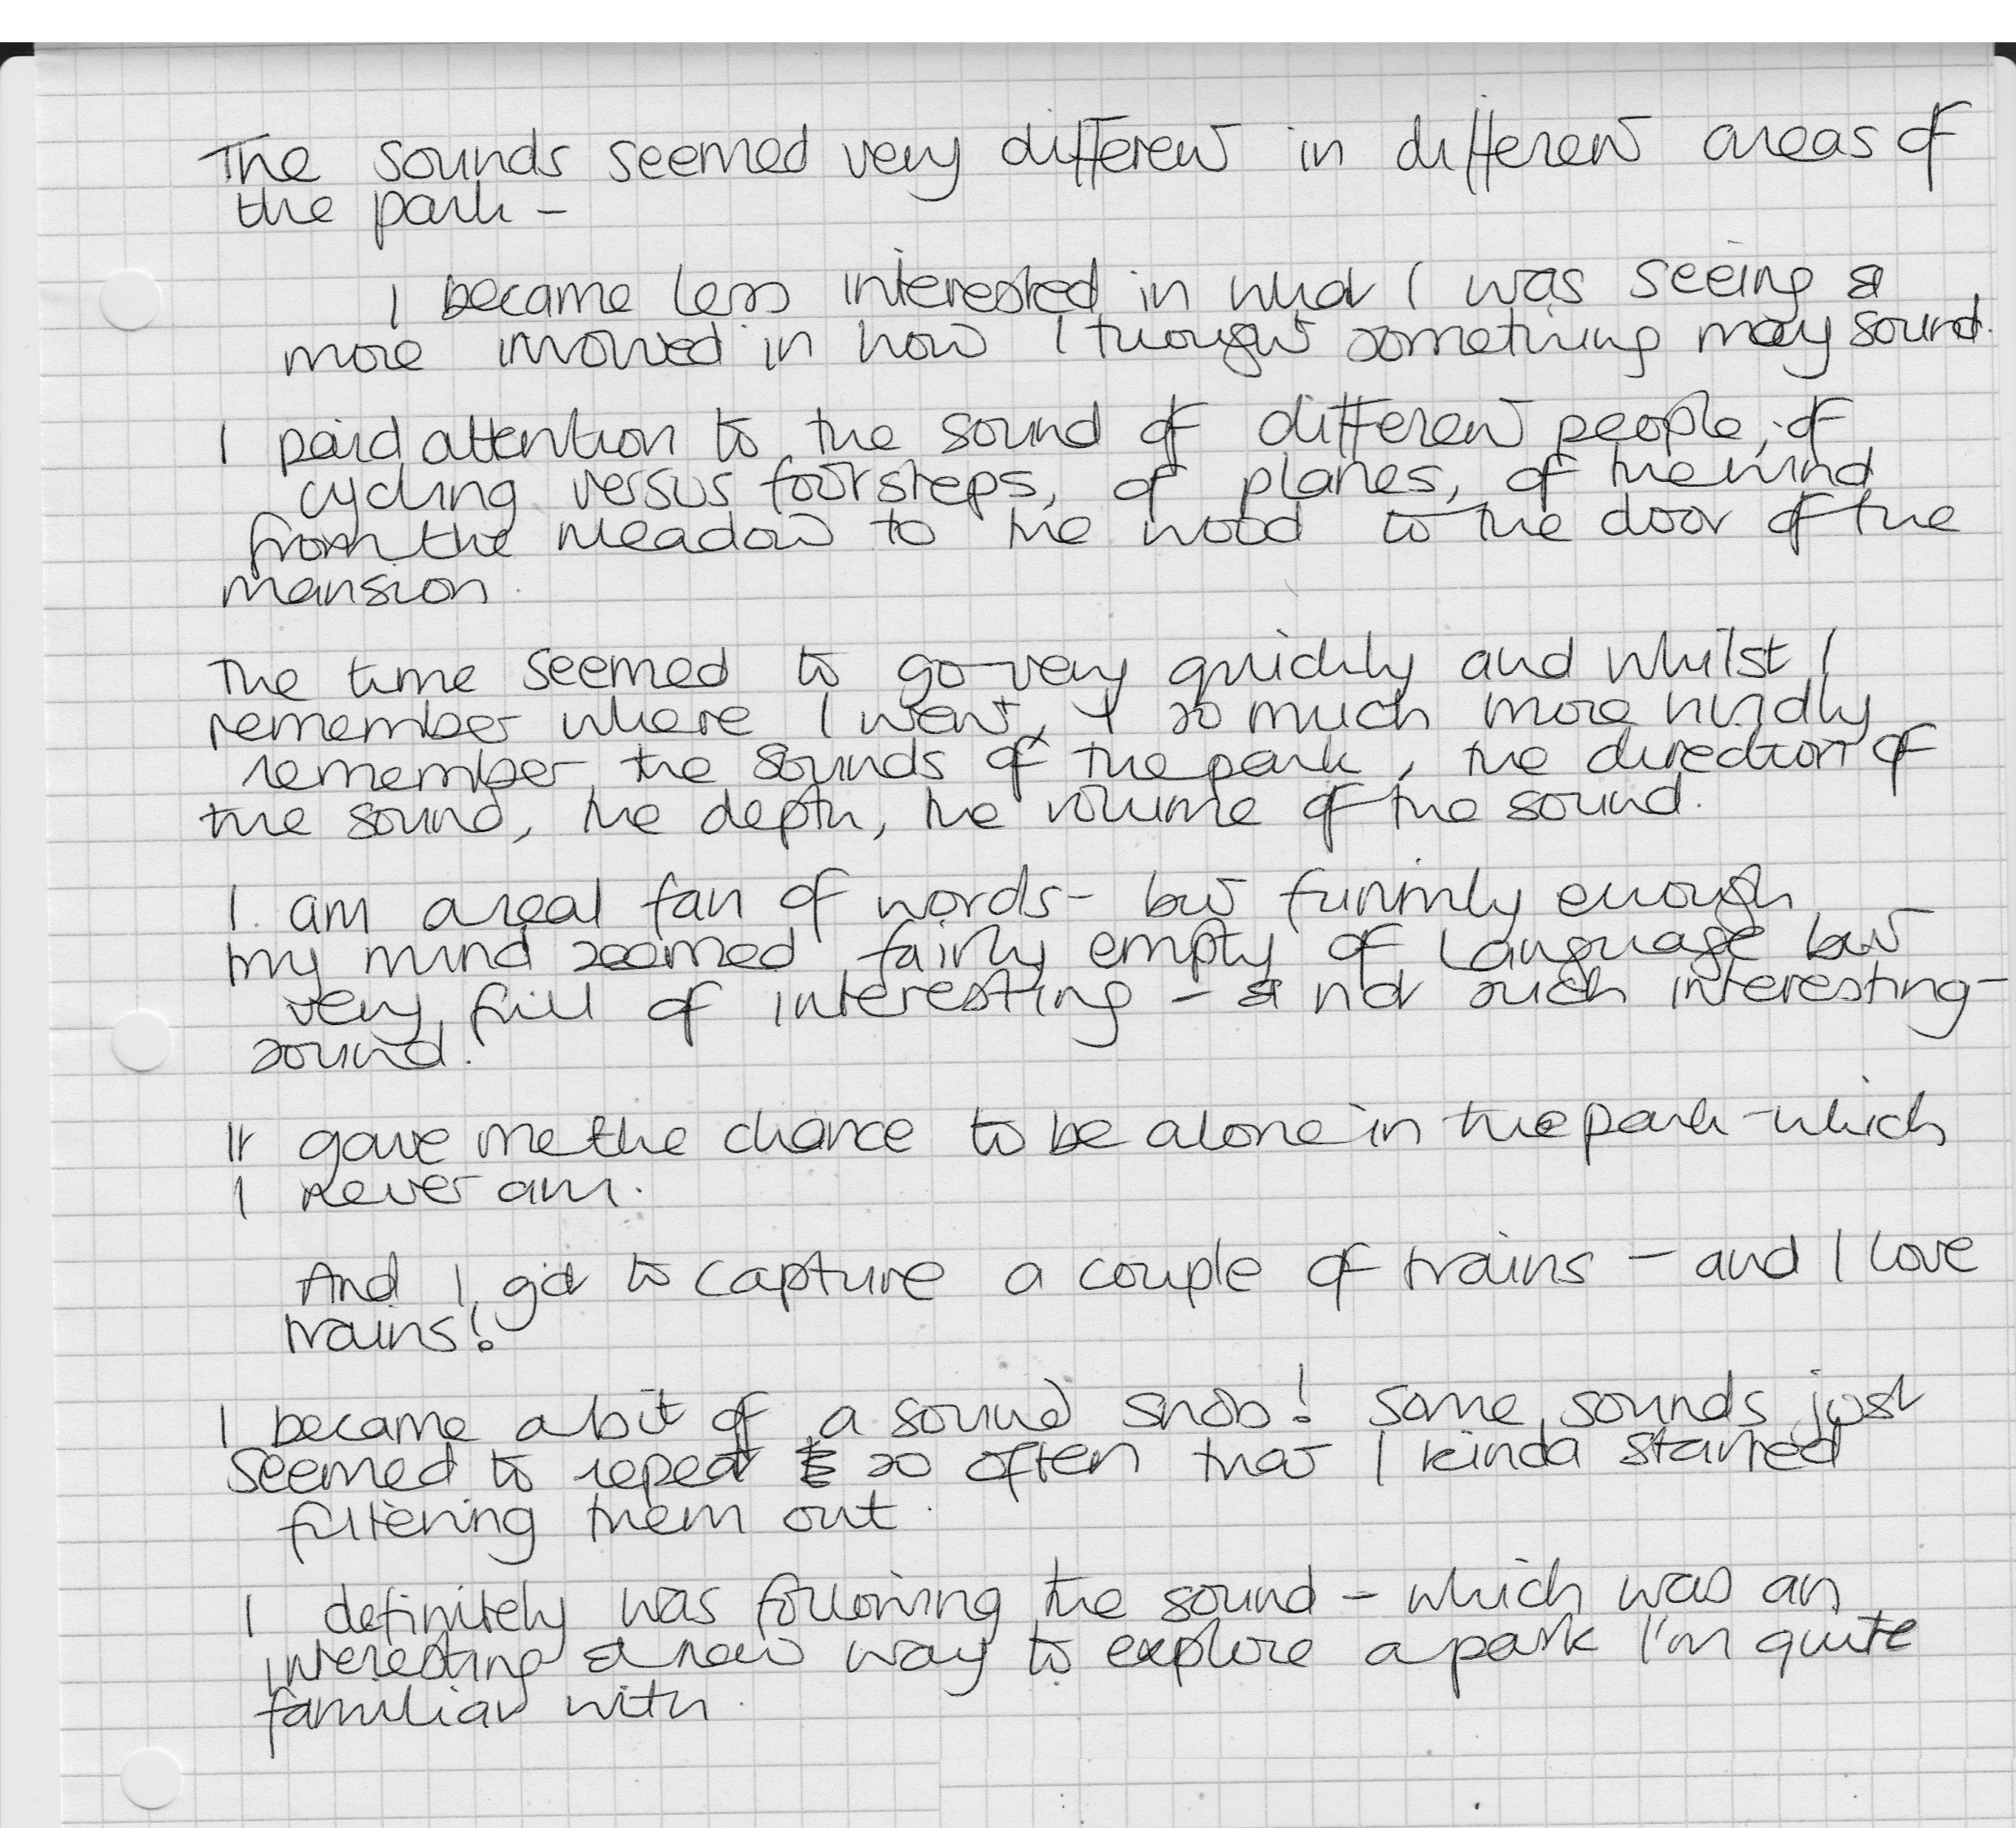 The sounds seemed very different in different areas of
the park -
I became less interested in what I was seeing &
more involved in how I thought something may sound.
I paid attention to the sound of different people, of
cycling versus footsteps, of planes, of the wind
from the meadow to the wood to the door of the
mansion.
The time seemed to go very quickly and whilst I
remember where I went, I so much more vividly
remember the sounds of the park, the direction of
the sound, the depth, the volume of the sound.
I am a real fan of words - but funnily enough
my mind seemed fairly empty of language but
very full of interesting - & not such interesting -
sound.
It gave me the chance to be alone in the park - which
I never am.
And I got to capture a couple of trains - and I love
trains!
I became a bit of a sound snob! Some sounds just
seemed to repeat so often that I kinda started
filtering them out.
I definitely was following the sound - which was an
interesting & new way to explore a park I'm quite
familiar with.